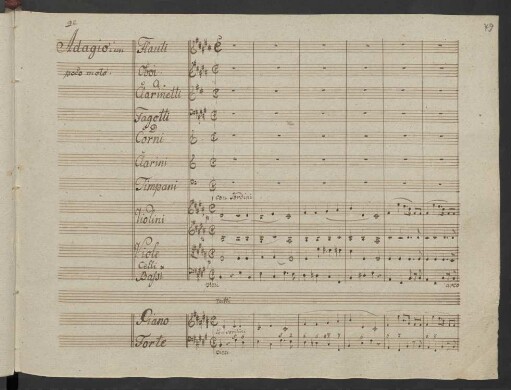 49
Adagio: un
poco moto:
Flauti
Oboi
A
Clarinetti
Fagotti
D
Corni
Clarini
Timpani
con Sordini
Violini
Viole
Celli
Bassi
pizz
arco
tutti
Piano
Forte
pizz